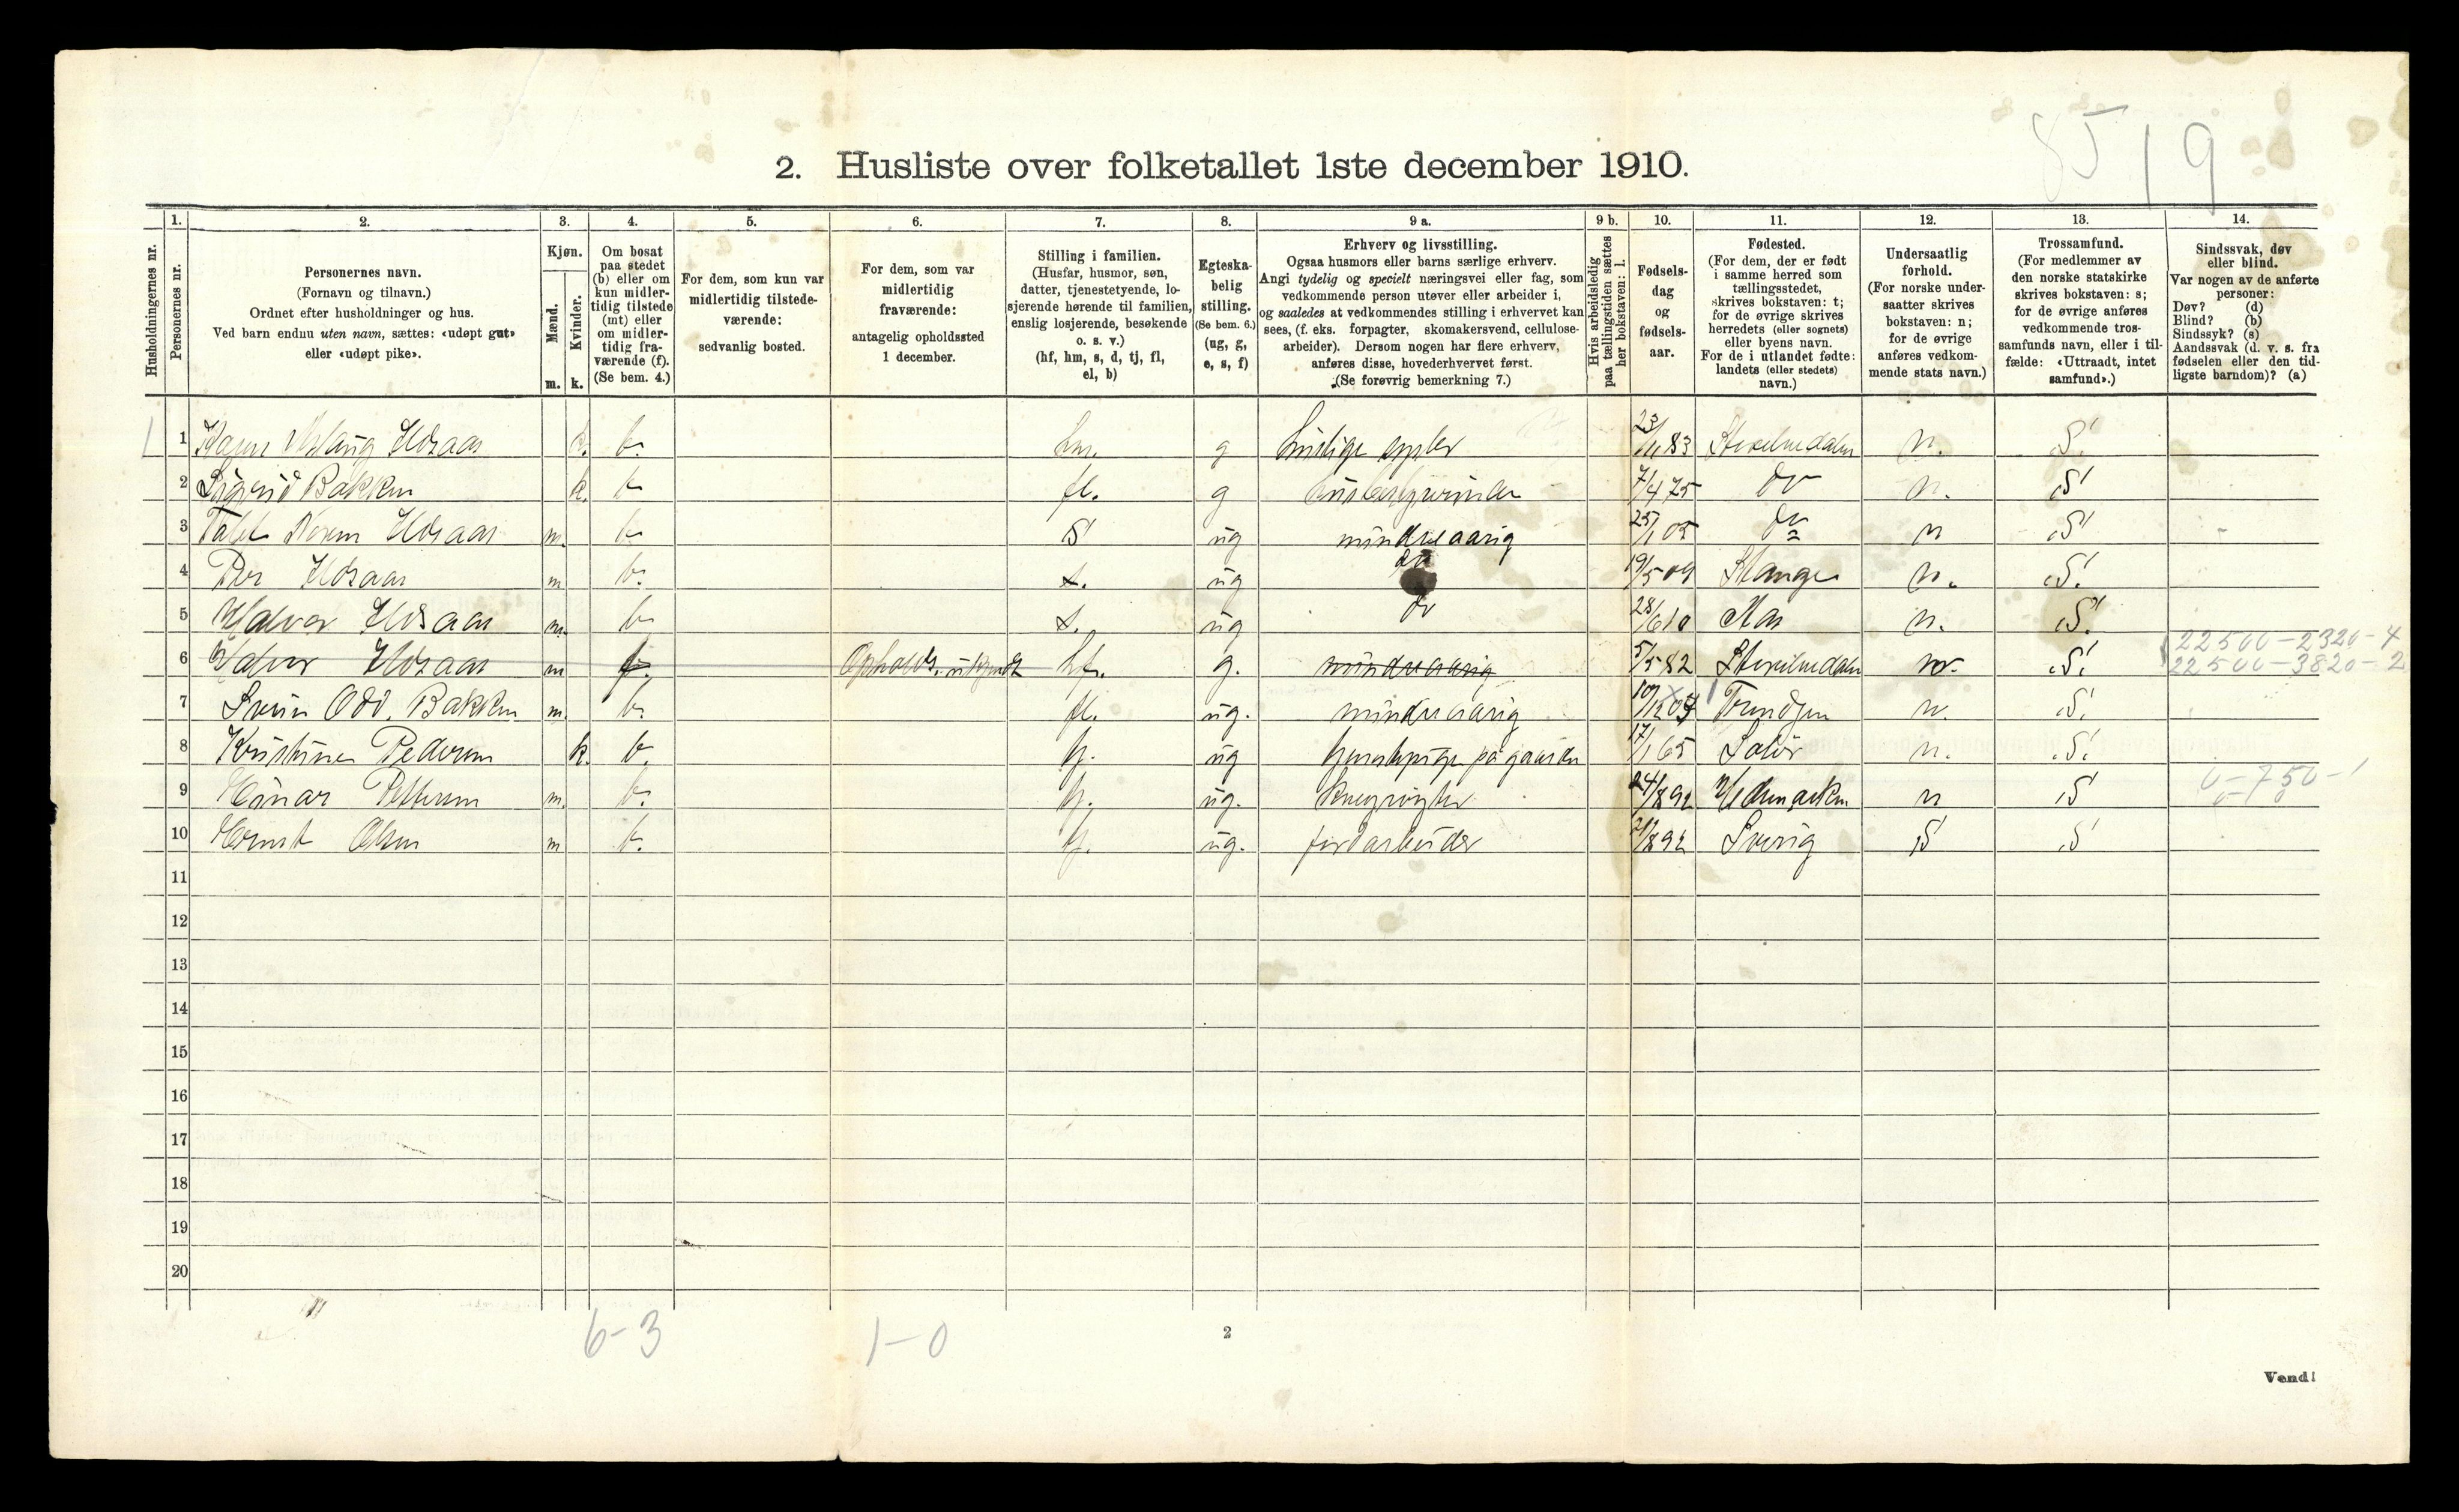 85 19
2. Husliste over folketallet 1ste december 1910.
Husholdningernes nr.
1. Personernes nr.
2. Personernes navn.
(Fornavn og tilnavn.)
Ordnet efter husholdninger og hus.
Ved barn endnu uten navn, sættes: «udøpt gut»
eller «udøpt pike».
3. Kjøn.
Mænd. m.
Kvinder. k.
4. Om bosat
paa stedet
(b) eller om
kun midler-
tidig tilstede
(mt) eller
om midler-
tidig fra-
værende (f).
(Se bem. 4.)
5. For dem, som kun var
midlertidig tilstede-
værende:
sedvanlig bosted.
6. For dem, som var
midlertidig
fraværende:
antagelig opholdssted
1 december.
7. Stilling i familien.
(Husfar, husmor, søn,
datter, tjenestetyende, lo-
sjerende hørende til familien,
enslig losjerende, besøkende
o. s. v.)
(hf, hm, s, d, tj, fl,
el, b)
8. Egteska-
belig
stilling.
(Se bem. 6.)
(ug, g,
e, s, f)
9 a. Erhverv og livsstilling.
Ogsaa husmors eller barns særlige erhverv.
Angi tydelig og specielt næringsvei eller fag, som
vedkommende person utøver eller arbeider i,
og saaledes at vedkommendes stilling i erhvervet kan
sees, (f. eks. forpagter, skomakersvend, cellulose-
arbeider). Dersom nogen har flere erhverv,
anføres disse, hovederhvervet først.
(Se forøvrig bemerkning 7.)
9 b. Hvis arbeidsledig
paa tællingstiden sættes
her bokstaven: l.
10. Fødsels-
dag
og
fødsels-
aar.
11. Fødested.
(For dem, der er født
i samme herred som
tællingsstedet,
skrives bokstaven: t;
for de øvrige skrives
herredets (eller sognets)
eller byens navn.
For de i utlandet fødte:
landets (eller stedets)
navn.)
12. Undersaatlig
forhold.
(For norske under-
saatter skrives
bokstaven: n;
for de øvrige
anføres vedkom-
mende stats navn.)
13. Trossamfund.
(For medlemmer av
den norske statskirke
skrives bokstaven: s;
for de øvrige anføres
vedkommende tros-
samfunds navn, eller i til-
fælde: «Uttraadt, intet
samfund».)
14. Sindssvak, døv
eller blind.
Var nogen av de anførte
personer:
Døv? (d)
Blind? (b)
Sindssyk? (s)
Aandssvak (d. v. s. fra
fødselen eller den tid-
ligste barndom)? (a)
1 1 k. b. hm. g huslige sysler 23/11 83 n. S.
2 Sigrid Bakken k. b fl. g 7/4 75 do n. S
3 m. b S ug mindreaarig 25/1 05 do n S
4 Per m b. s. ug do 19/5 09 Stange n. S.
5 Halvor m. b s. ug do 28/6 10 Aas n. S.
6 Halvor m f. Ophold. hf. g. mindreaarig 5/5 82 n. S. 22500-2320-4
22500-3820-2
7 Svein Odd. Bakken m. b. fl. ug. mindreaarig n. S.
8 Kristine Pedersen k. b. tj. ug på gaarden 17/1 65 Solør n. S.
9 Einar Pettersen m. b. tj. ug. 24/8 92 Hedmarken n S 0-750-1
10 Ernst Olsen m b. tj. ug. jordarbeider Sverig S S
11
12
13
14
15
16
17
18
19
20
6-3 1-0
2
Vend!